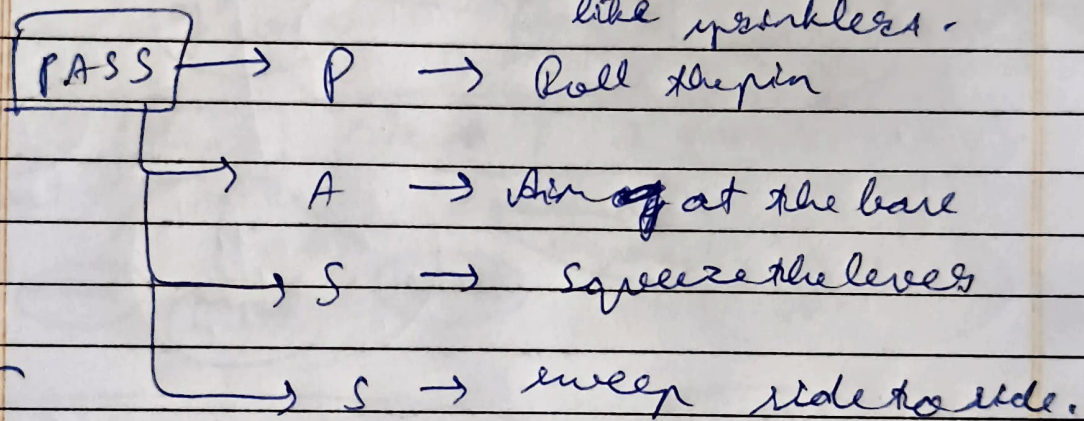 like sprinklers.
PASS → P → Pull the pin
A → Aim at the base
S → Squeeze the lever
S → sweep side to side.